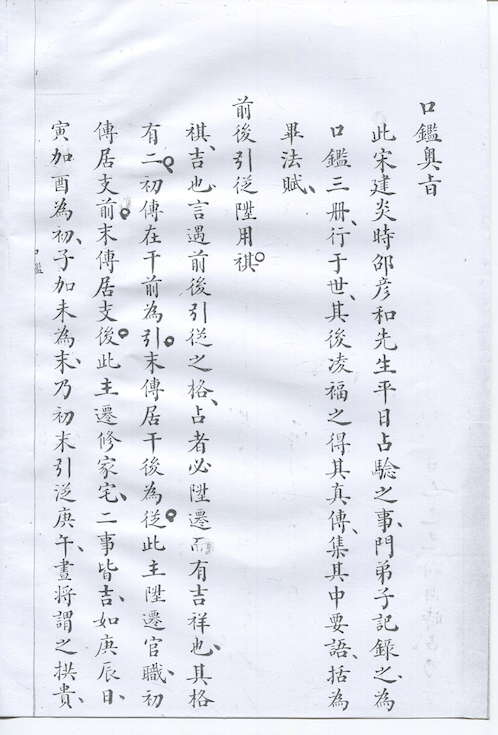 口鑑奧旨
此宋建炎時邵彦和先生平日占驗之事、門弟子記錄之、為
口鑑三冊、行于世、其後凌福之得其真傳、集其中要語、括為
畢法賦、
前後引從陞用祺。
祺、吉也、言遇前後引從之格、占者必陞遷而有吉祥也、其格
有二。初傳在干前為引。末傳居干後為從。此主陞遷官職、初
傳居支前。末傳居支後。此主遷修家宅、二事皆吉、如庚辰日、
寅加酉為初、子加未為末、乃初末引從庚午、晝將謂之拱貴、
口鑑